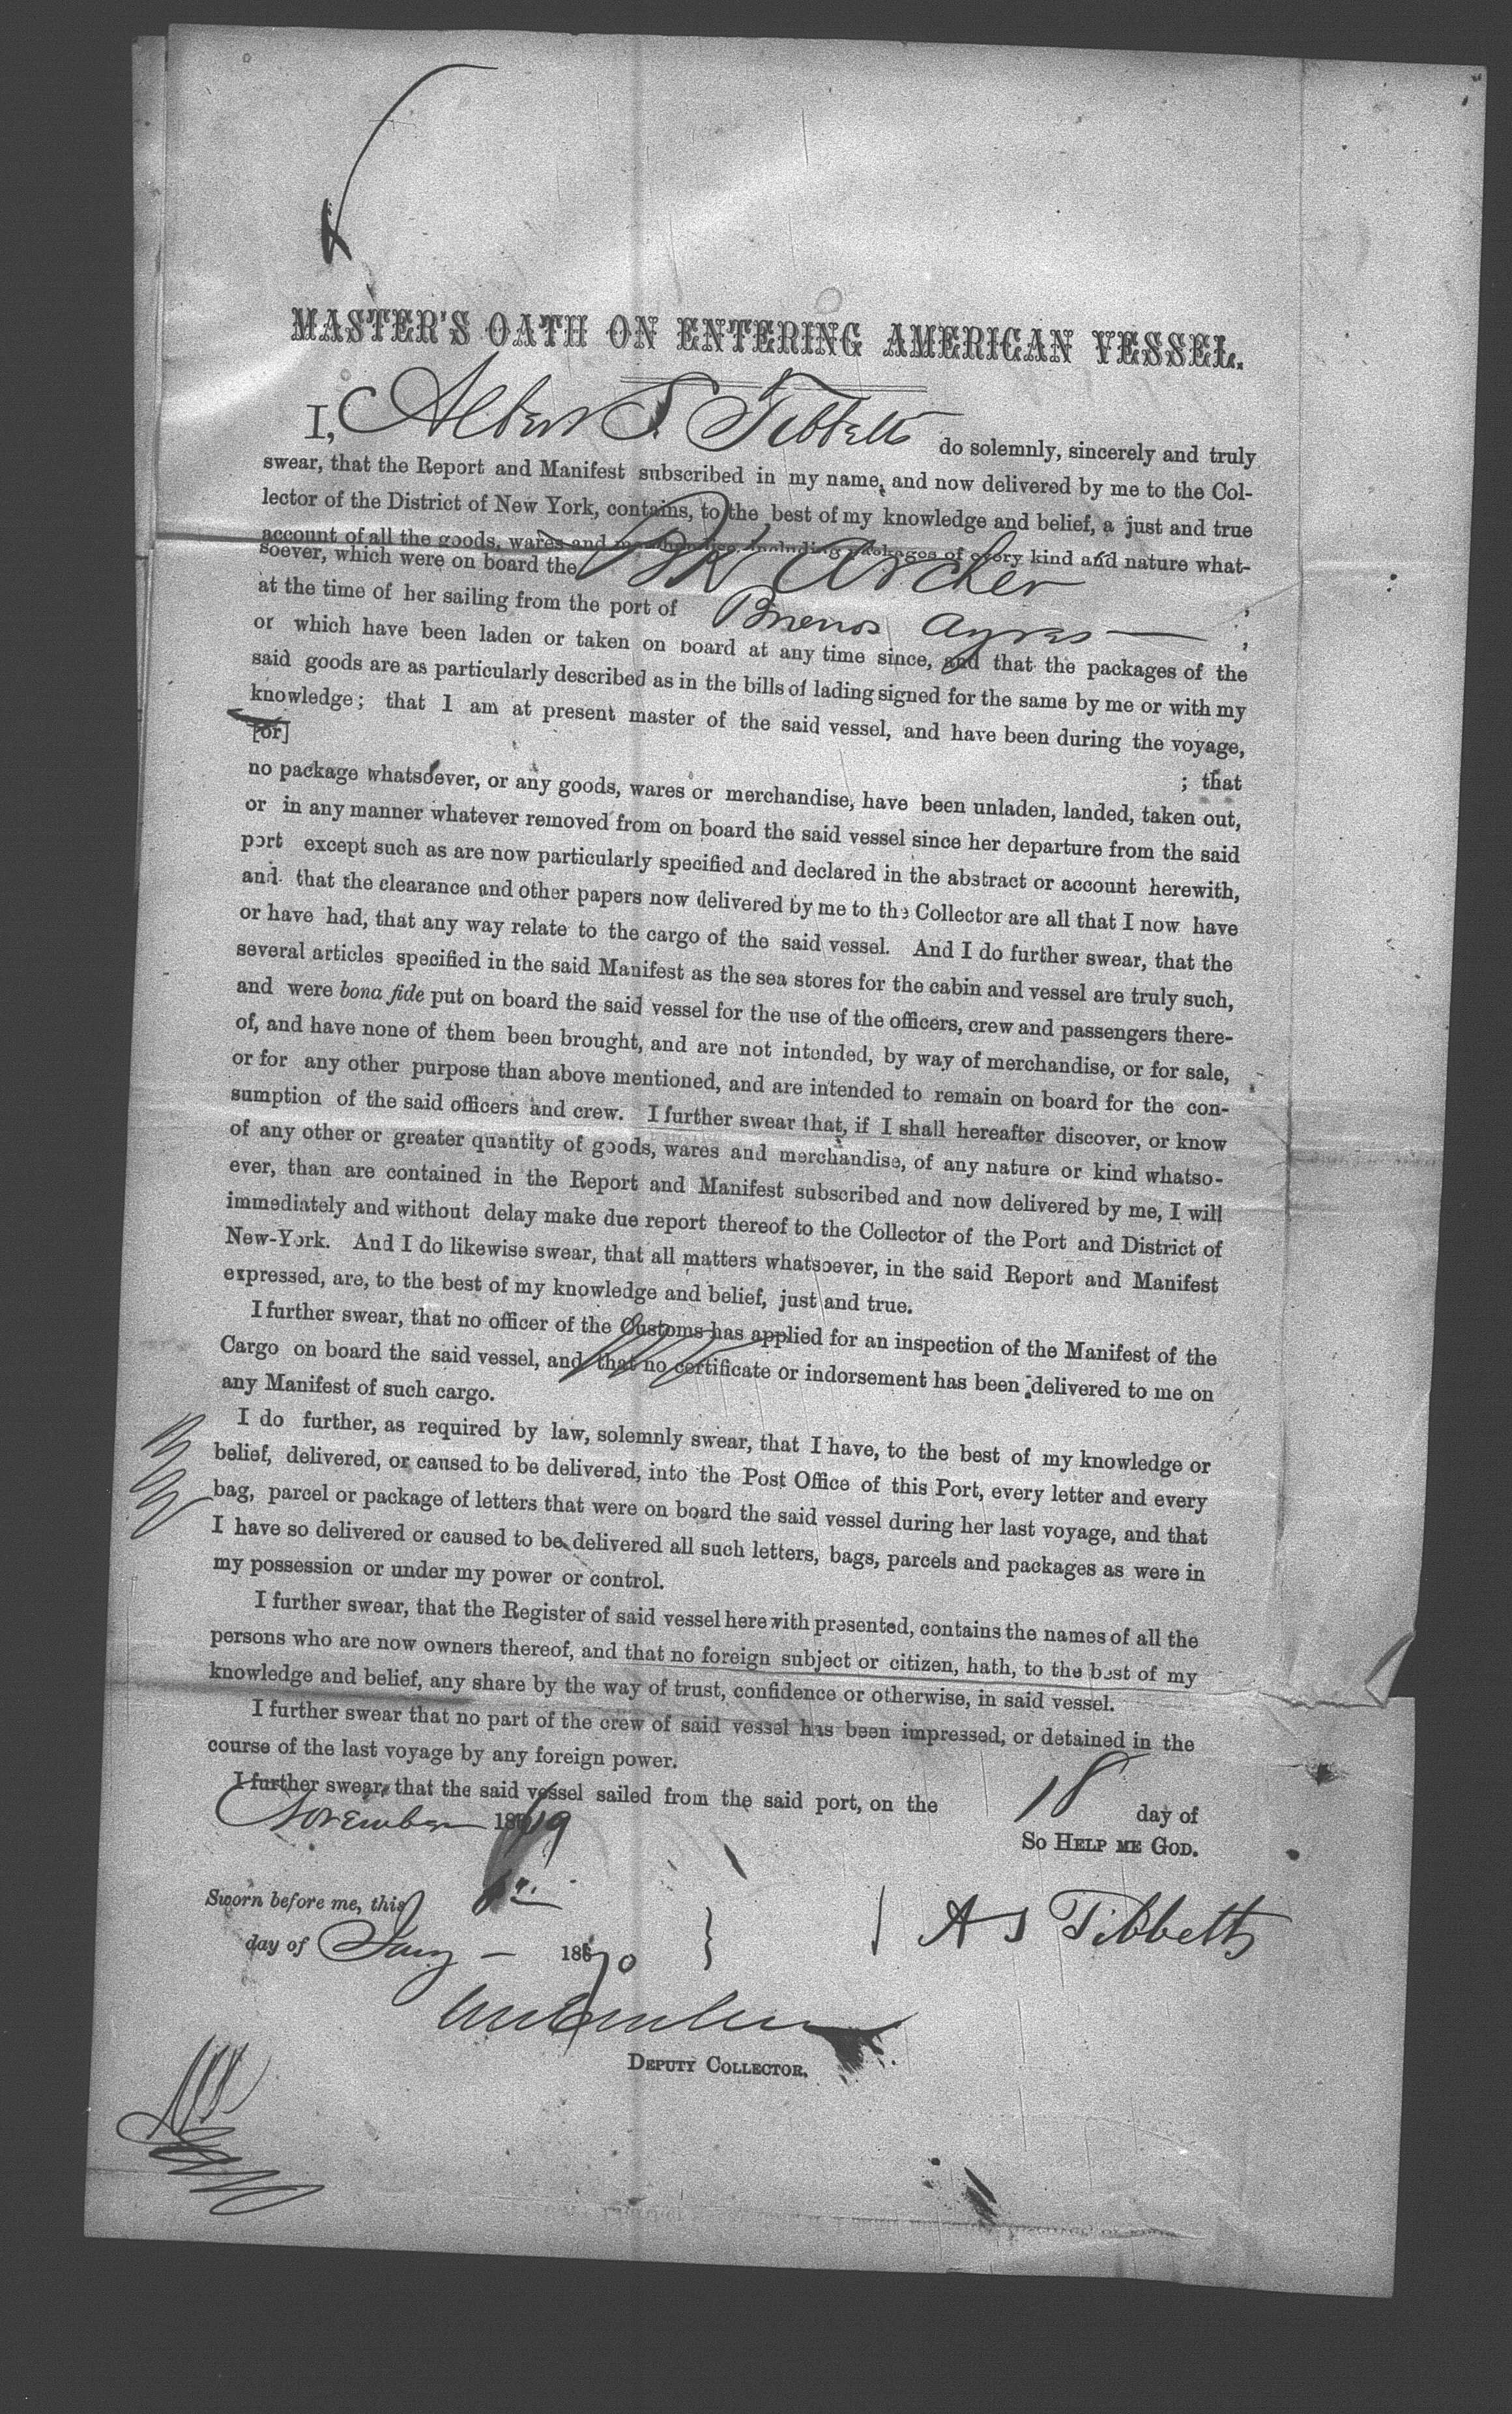 MASTER'S OATH ON ENTERING AMERICAN VESSEL.
I, Albert S. Tibbetts do solemnly, sincerely and truly
swear, that the Report and Manifest subscribed in my name, and now delivered by me to the Col-
lector of the District of New York, contains, to the best of my knowledge and belief, a just and true
account of all the goods, wares and merchandise, including packages of every kind and nature what-
soever, which were on board the Bk Archer
at the time of her sailing from the port of Buenos Ayres — ;
or which have been laden or taken on board at any time since, and that the packages of the
said goods are as particularly described as in the bills of lading signed for the same by me or with my
knowledge; that I am at present master of the said vessel, and have been during the voyage,
[or]
; that
no package whatsoever, or any goods, wares or merchandise, have been unladen, landed, taken out,
or in any manner whatever removed from on board the said vessel since her departure from the said
port except such as are now particularly specified and declared in the abstract or account herewith,
and that the clearance and other papers now delivered by me to the Collector are all that I now have
or have had, that any way relate to the cargo of the said vessel. And I do further swear, that the
several articles specified in the said Manifest as the sea stores for the cabin and vessel are truly such,
and were bona fide put on board the said vessel for the use of the officers, crew and passengers there-
of, and have none of them been brought, and are not intended, by way of merchandise, or for sale,
or for any other purpose than above mentioned, and are intended to remain on board for the con-
sumption of the said officers and crew. I further swear that, if I shall hereafter discover, or know
of any other or greater quantity of goods, wares and merchandise, of any nature or kind whatso-
ever, than are contained in the Report and Manifest subscribed and now delivered by me, I will
immediately and without delay make due report thereof to the Collector of the Port and District of
New-York. And I do likewise swear, that all matters whatsoever, in the said Report and Manifest
expressed, are, to the best of my knowledge and belief, just and true.
I further swear, that no officer of the Customs has applied for an inspection of the Manifest of the
Cargo on board the said vessel, and that no certificate or indorsement has been delivered to me on
any Manifest of such cargo.
I do further, as required by law, solemnly swear, that I have, to the best of my knowledge or
belief, delivered, or caused to be delivered, into the Post Office of this Port, every letter and every
bag, parcel or package of letters that were on board the said vessel during her last voyage, and that
I have so delivered or caused to be delivered all such letters, bags, parcels and packages as were in
my possession or under my power or control.
I further swear, that the Register of said vessel herewith presented, contains the names of all the
persons who are now owners thereof, and that no foreign subject or citizen, hath, to the best of my
knowledge and belief, any share by the way of trust, confidence or otherwise, in said vessel.
I further swear that no part of the crew of said vessel has been impressed, or detained in the
course of the last voyage by any foreign power.
I further swear, that the said vessel sailed from the said port, on the 18 day of
November 1869
So HELP ME GOD.
Sworn before me, this
day of Jany — 1870
A S Tibbetts
DEPUTY COLLECTOR.